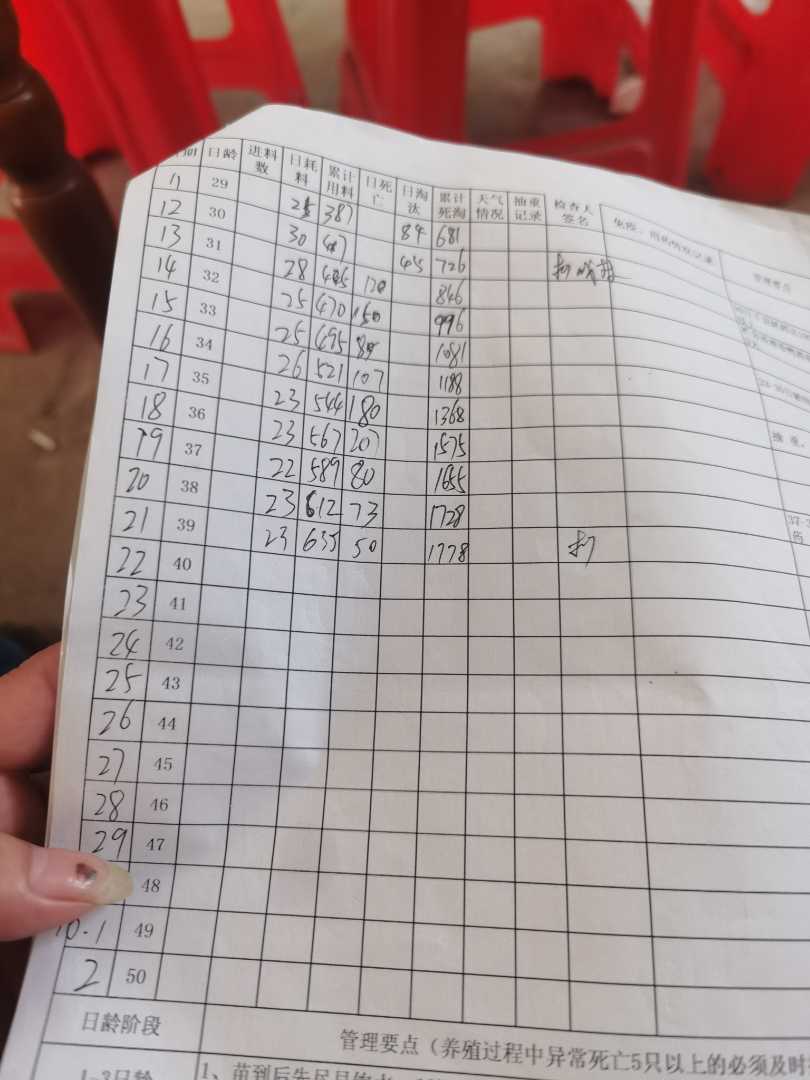 间 日龄 进料数 日耗料 累计用料 日死亡 日淘汰 累计死淘 天气情况 抽重记录 检查人签名 免疫、用药情况记录 管理要点
11 29 25 387 84 681
12 30 30 417 45 726
13 31 28 445 120 846
14 32 25 470 150 996
15 33 25 495 85 1081
16 34 26 521 107 1188
17 35 23 544 180 1368
18 36 23 567 207 1575
19 37 22 589 80 1655
20 38 23 612 73 1728
21 39 23 635 50 1778
22 40
23 41
24 42
25 43
26 44
27 45
28 46
29 47
48
10.1 49
2 50
日龄阶段 管理要点（养殖过程中异常死亡5只以上的必须及时
1-3日龄 1、苗到后先尽量饮水